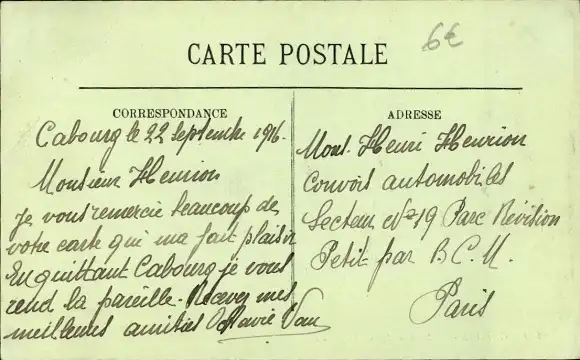 6€
CARTE POSTALE
CORRESPONDANCE
Cabourg le 22 Septembre 1916.
Monsieur Henrion
Je vous remercie beaucoup de
votre carte qui ma fait plaisir
En quittant Cabourg je vous
rend la pareille. Recevez mes
meilleures amitiés Octavie Vau
ADRESSE
Mons. Henri Henrion
Convois automobiles
Secteur N° 19 Parc Révision
Petit par B.C.M.
Paris